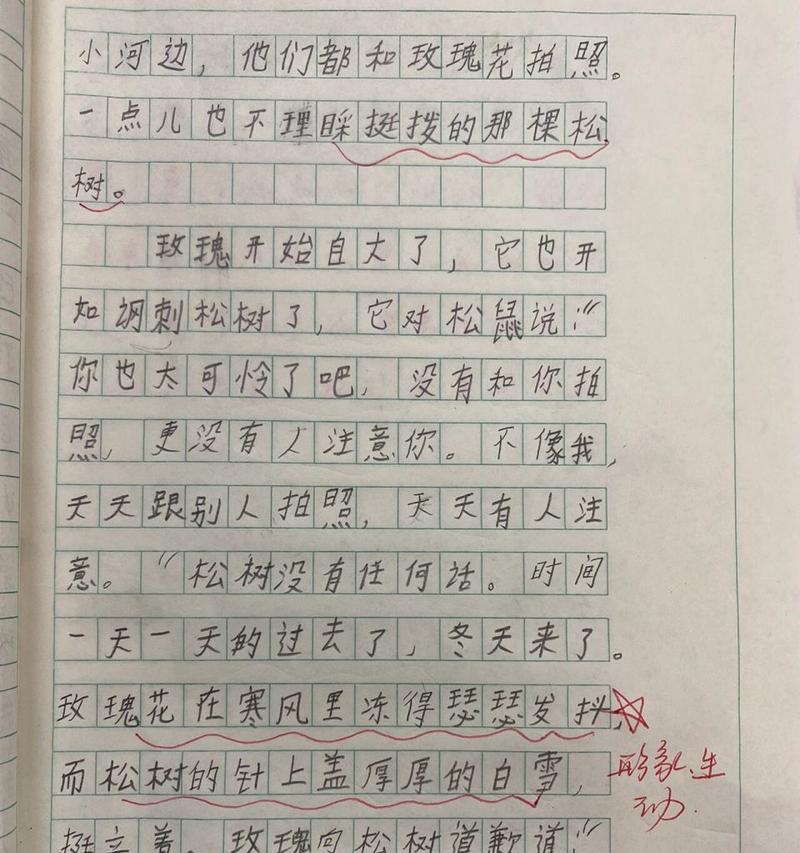 小河边，他们都和玫瑰花拍照。
一点儿也不理睬挺拨的那棵松
树。
玫瑰开始自大了，它也开
如讽刺松树了，它对松鼠说："
你也太可怜了吧，没有和你拍
照，更没有人注意你。不像我，
天天跟别人拍照，天天有人注
意。"松树没有任何话。时间
一天一天的过去了，冬天来了。
玫瑰花在寒风里冻得瑟瑟发抖，
而松树的针上盖厚厚的白雪，
形象、生
动.
挺立着。玫瑰向松树道歉道："